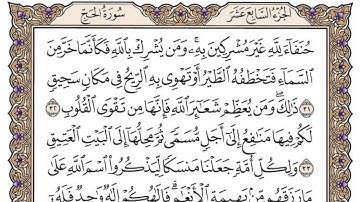 الجزء السابع عشر سورة الحج
حُنَفَآءَ لِلَّهِ غَيۡرَ مُشۡرِكِينَ بِهِۦۚ وَمَن يُشۡرِكۡ بِٱللَّهِ فَكَأَنَّمَا خَرَّ مِنَ
ٱلسَّمَآءِ فَتَخۡطَفُهُ ٱلطَّيۡرُ أَوۡ تَهۡوِي بِهِ ٱلرِّيحُ فِي مَكَانٖ سَحِيقٖ
٣١ ذَٰلِكَۖ وَمَن يُعَظِّمۡ شَعَٰٓئِرَ ٱللَّهِ فَإِنَّهَا مِن تَقۡوَى ٱلۡقُلُوبِ ٣٢
لَكُمۡ فِيهَا مَنَٰفِعُ إِلَىٰٓ أَجَلٖ مُّسَمّٗى ثُمَّ مَحِلُّهَآ إِلَى ٱلۡبَيۡتِ ٱلۡعَتِيقِ
٣٣ وَلِكُلِّ أُمَّةٖ جَعَلۡنَا مَنسَكٗا لِّيَذۡكُرُواْ ٱسۡمَ ٱللَّهِ عَلَىٰ
مَا رَزَقَهُم مِّنۢ بَهِيمَةِ ٱلۡأَنۡعَٰمِۗ فَإِلَٰهُكُمۡ إِلَٰهٞ وَٰحِدٞ فَلَهُۥٓ